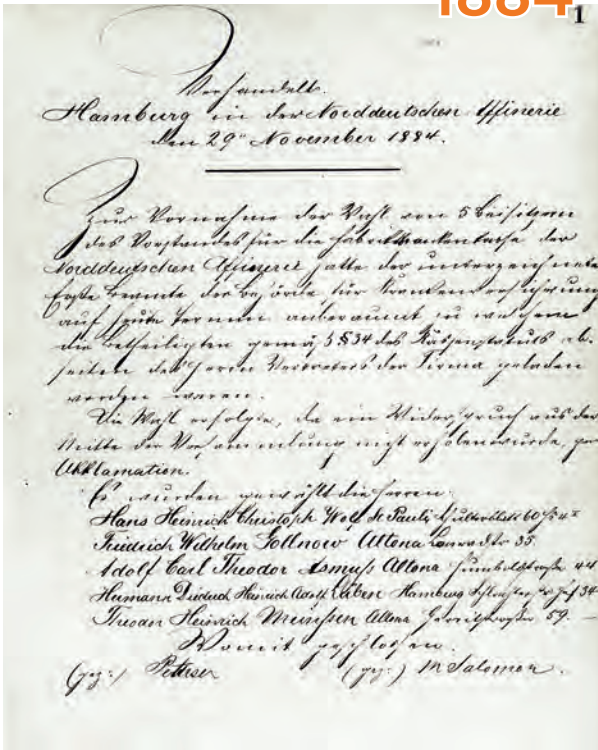 1884
1
Verhandelt.
Hamburg in der Norddeutschen Affinerie
den 29n November 1884.
Zur Vornahme der Wahl von 5 Beisitzern
des Vorstandes für die Fabrikkrankenkasse der
Norddeutschen Affinerie hatte der unterzeichnete
erste Beamte der Behörde für Krankenversicherung
auf heute Termin anberaumt zu welchem
die Betheiligten gemäß § 34 des Kassenstatuts ab-
seiten des Herrn Vertreters der Firma geladen
worden waren.
Die Wahl erfolgte, da ein Widerspruch aus der
Mitte der Versammlung nicht erhoben wurde, per
Akklamation.
Es wurden gewählt die Herren:
Hans Heinrich Christoph Wolf St Pauli, Schulterblatt 60
Friedrich Wilhelm Gollnow Altona 35
Adolf Carl Theodor Asmuss Altona Humboldtstraße 44
Hermann Diedrich Heinrich Adolf Hamburg 34
Theodor Heinrich Altona 59.
Womit geschlossen.
(gez:) Petersen (gez:) M Salomon.